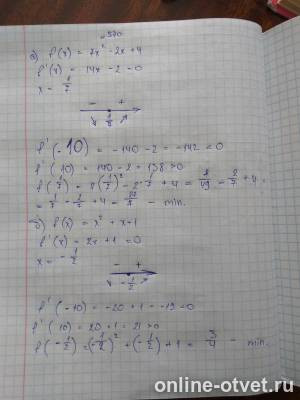 №570
а) f(x) = 7x² - 2x + 4
f'(x) = 14x - 2 = 0
x = 1/7
- +
1/7
f'(-10) = -140 - 2 = -142 < 0
f'(10) = 140 - 2 = 138 > 0
f(1/7) = 7(1/7)² - 2·1/7 + 4 =
+ 4 = - min.
б) f(x) = x² + x + 1
f'(x) = 2x + 1 = 0
x = -1/2
- +
-1/2
f'(-10) = -20 + 1 = -19 < 0
f'(10) = 20 + 1 = 21 > 0
f(-1/2) = (-1/2)² + (-1/2) + 1 = 3/4 - min.
online-otvet.ru